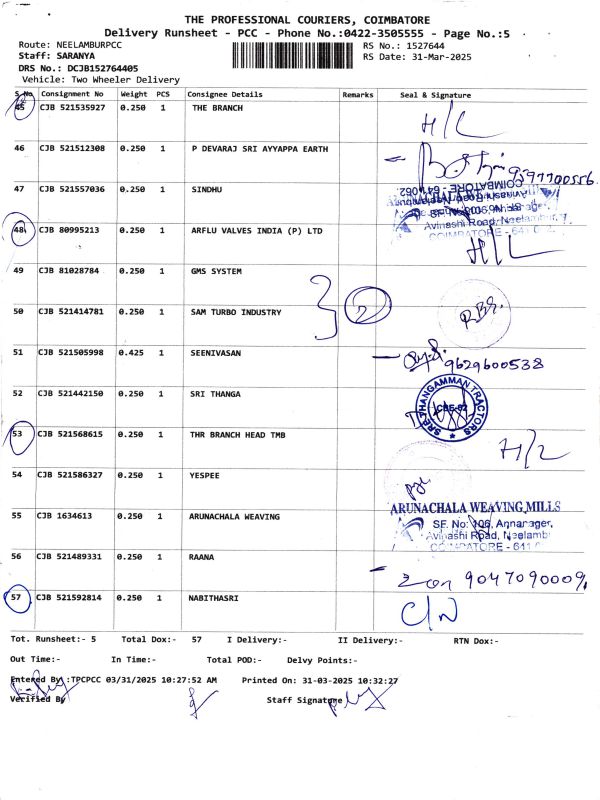 THE PROFESSIONAL COURIERS, COIMBATORE
Delivery Runsheet - PCC - Phone No.:0422-3505555 - Page No.:5
Route: NEELAMBURPCC
RS No.: 1527644
Staff: SARANYA
RS Date: 31-Mar-2025
DRS No.: DCJB152764405
Vehicle: Two Wheeler Delivery
S.No Consignment No Weight PCS Consignee Details Remarks Seal & Signature
45 CJB 521535927 0.250 1 THE BRANCH H/L
46 CJB 521512308 0.250 1 P DEVARAJ SRI AYYAPPA EARTH 9597700556
47 CJB 521557036 0.250 1 SINDHU
Avinashi Road, Neelambur
COIMBATORE - 641062
48 CJB 80995213 0.250 1 ARFLU VALVES INDIA (P) LTD H/L
49 CJB 81028784 0.250 1 GMS SYSTEM
50 CJB 521414781 0.250 1 SAM TURBO INDUSTRY 2
51 CJB 521505998 0.425 1 SEENIVASAN 9629600538
52 CJB 521442150 0.250 1 SRI THANGA
SREE THANGAMMAN TRACTORS
53 CJB 521568615 0.250 1 THR BRANCH HEAD TMB H/L
54 CJB 521586327 0.250 1 YESPEE
55 CJB 1634613 0.250 1 ARUNACHALA WEAVING
ARUNACHALA WEAVING MILLS
SF. No: 106, Annanager,
Avinashi Road, Neelamb
COIMBATORE - 641 0
56 CJB 521489331 0.250 1 RAANA
57 CJB 521592814 0.250 1 NABITHASRI C/N
Tot. Runsheet:- 5 Total Dox:- 57 I Delivery:- II Delivery:- RTN Dox:-
Out Time:- In Time:- Total POD:- Delvy Points:-
Entered By :TPCPCC 03/31/2025 10:27:52 AM Printed On: 31-03-2025 10:32:27
Verified By Staff Signature